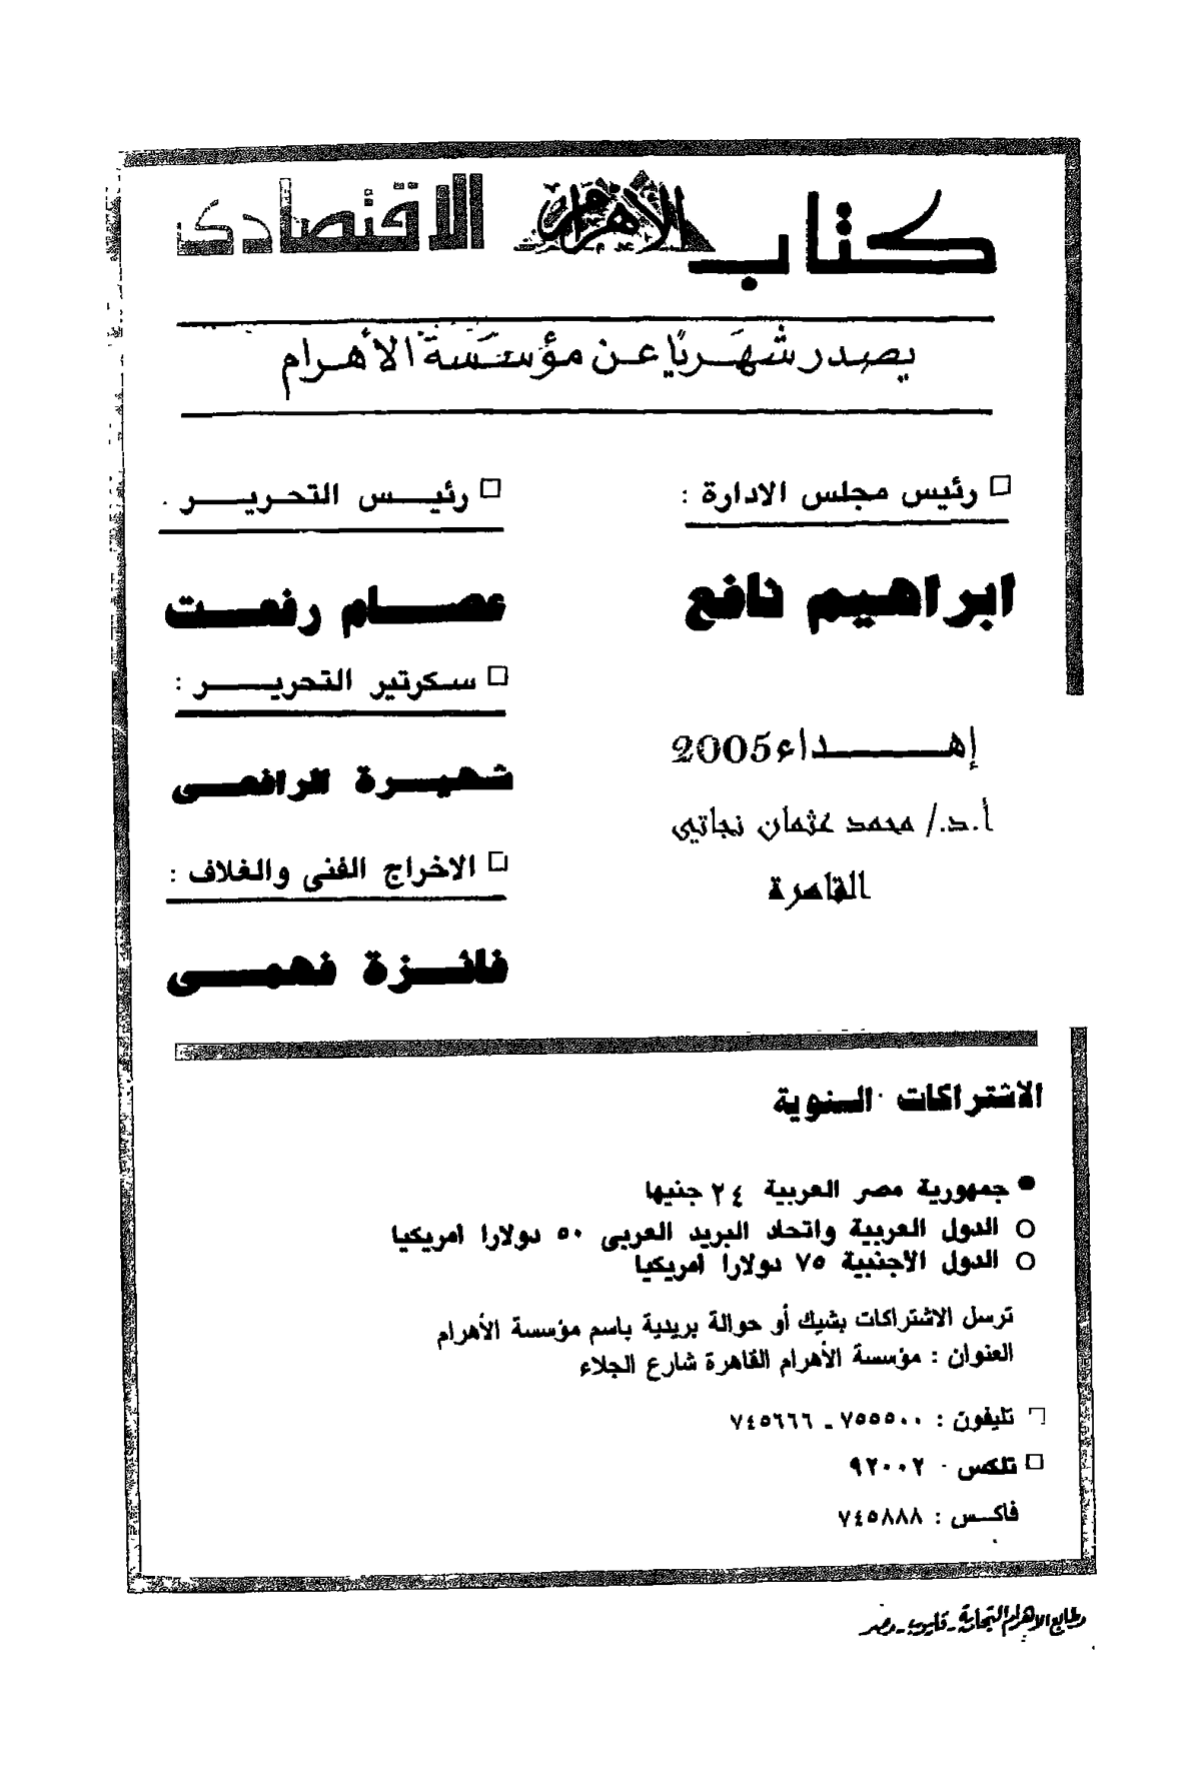 كتاب الأهرام الاقتصادى
يصدر شهريًا عن مؤسسة الأهرام
□ رئيس مجلس الادارة :
ابراهيم نافع
إهـــداء 2005
أ.د./ محمد عثمان نجاتي
القاهرة
□ رئيس التحرير .
عصام رفعت
□ سكرتير التحرير :
شهيرة الرافعى
□ الاخراج الفنى والغلاف :
فائزة فهمى
الاشتراكات السنوية
● جمهورية مصر العربية ٢٤ جنيها
○ الدول العربية واتحاد البريد العربى ٥٠ دولارا امريكيا
○ الدول الاجنبية ٧٥ دولارا امريكيا
ترسل الاشتراكات بشيك أو حوالة بريدية باسم مؤسسة الأهرام
العنوان : مؤسسة الأهرام القاهرة شارع الجلاء
□ تليفون : ٧٥٥٥٠٠ ـ ٧٤٥٦٦٦
□ تلكس ٩٢٠٠٢
فاكس : ٧٤٥٨٨٨
مطابع الاهرام التجارية - قليوب - مصر